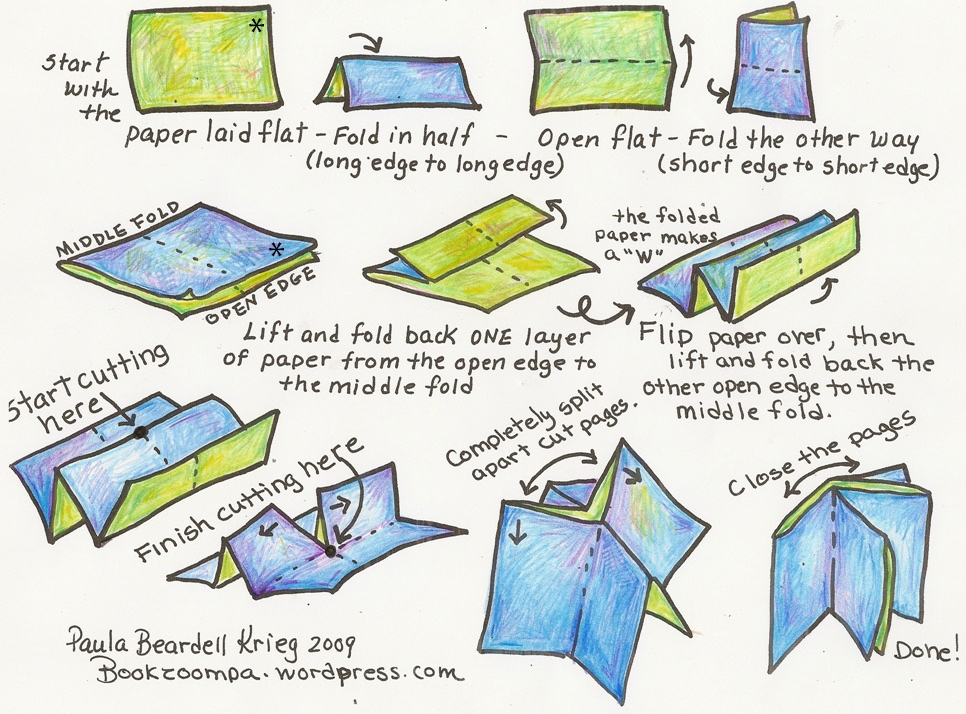 Start
with
the
paper laid flat - Fold in half - Open flat - Fold the other way
(long edge to long edge) (short edge to short edge)
MIDDLE FOLD
OPEN EDGE
the folded
paper makes
a "W"
Lift and fold back ONE layer
of paper from the open edge to
the middle fold
Flip paper over, then
lift and fold back the
other open edge to the
middle fold.
Start cutting
here
Finish cutting here
Completely split
apart cut pages.
Close the pages
Done!
Paula Beardell Krieg 2009
Bookzoompa.wordpress.com